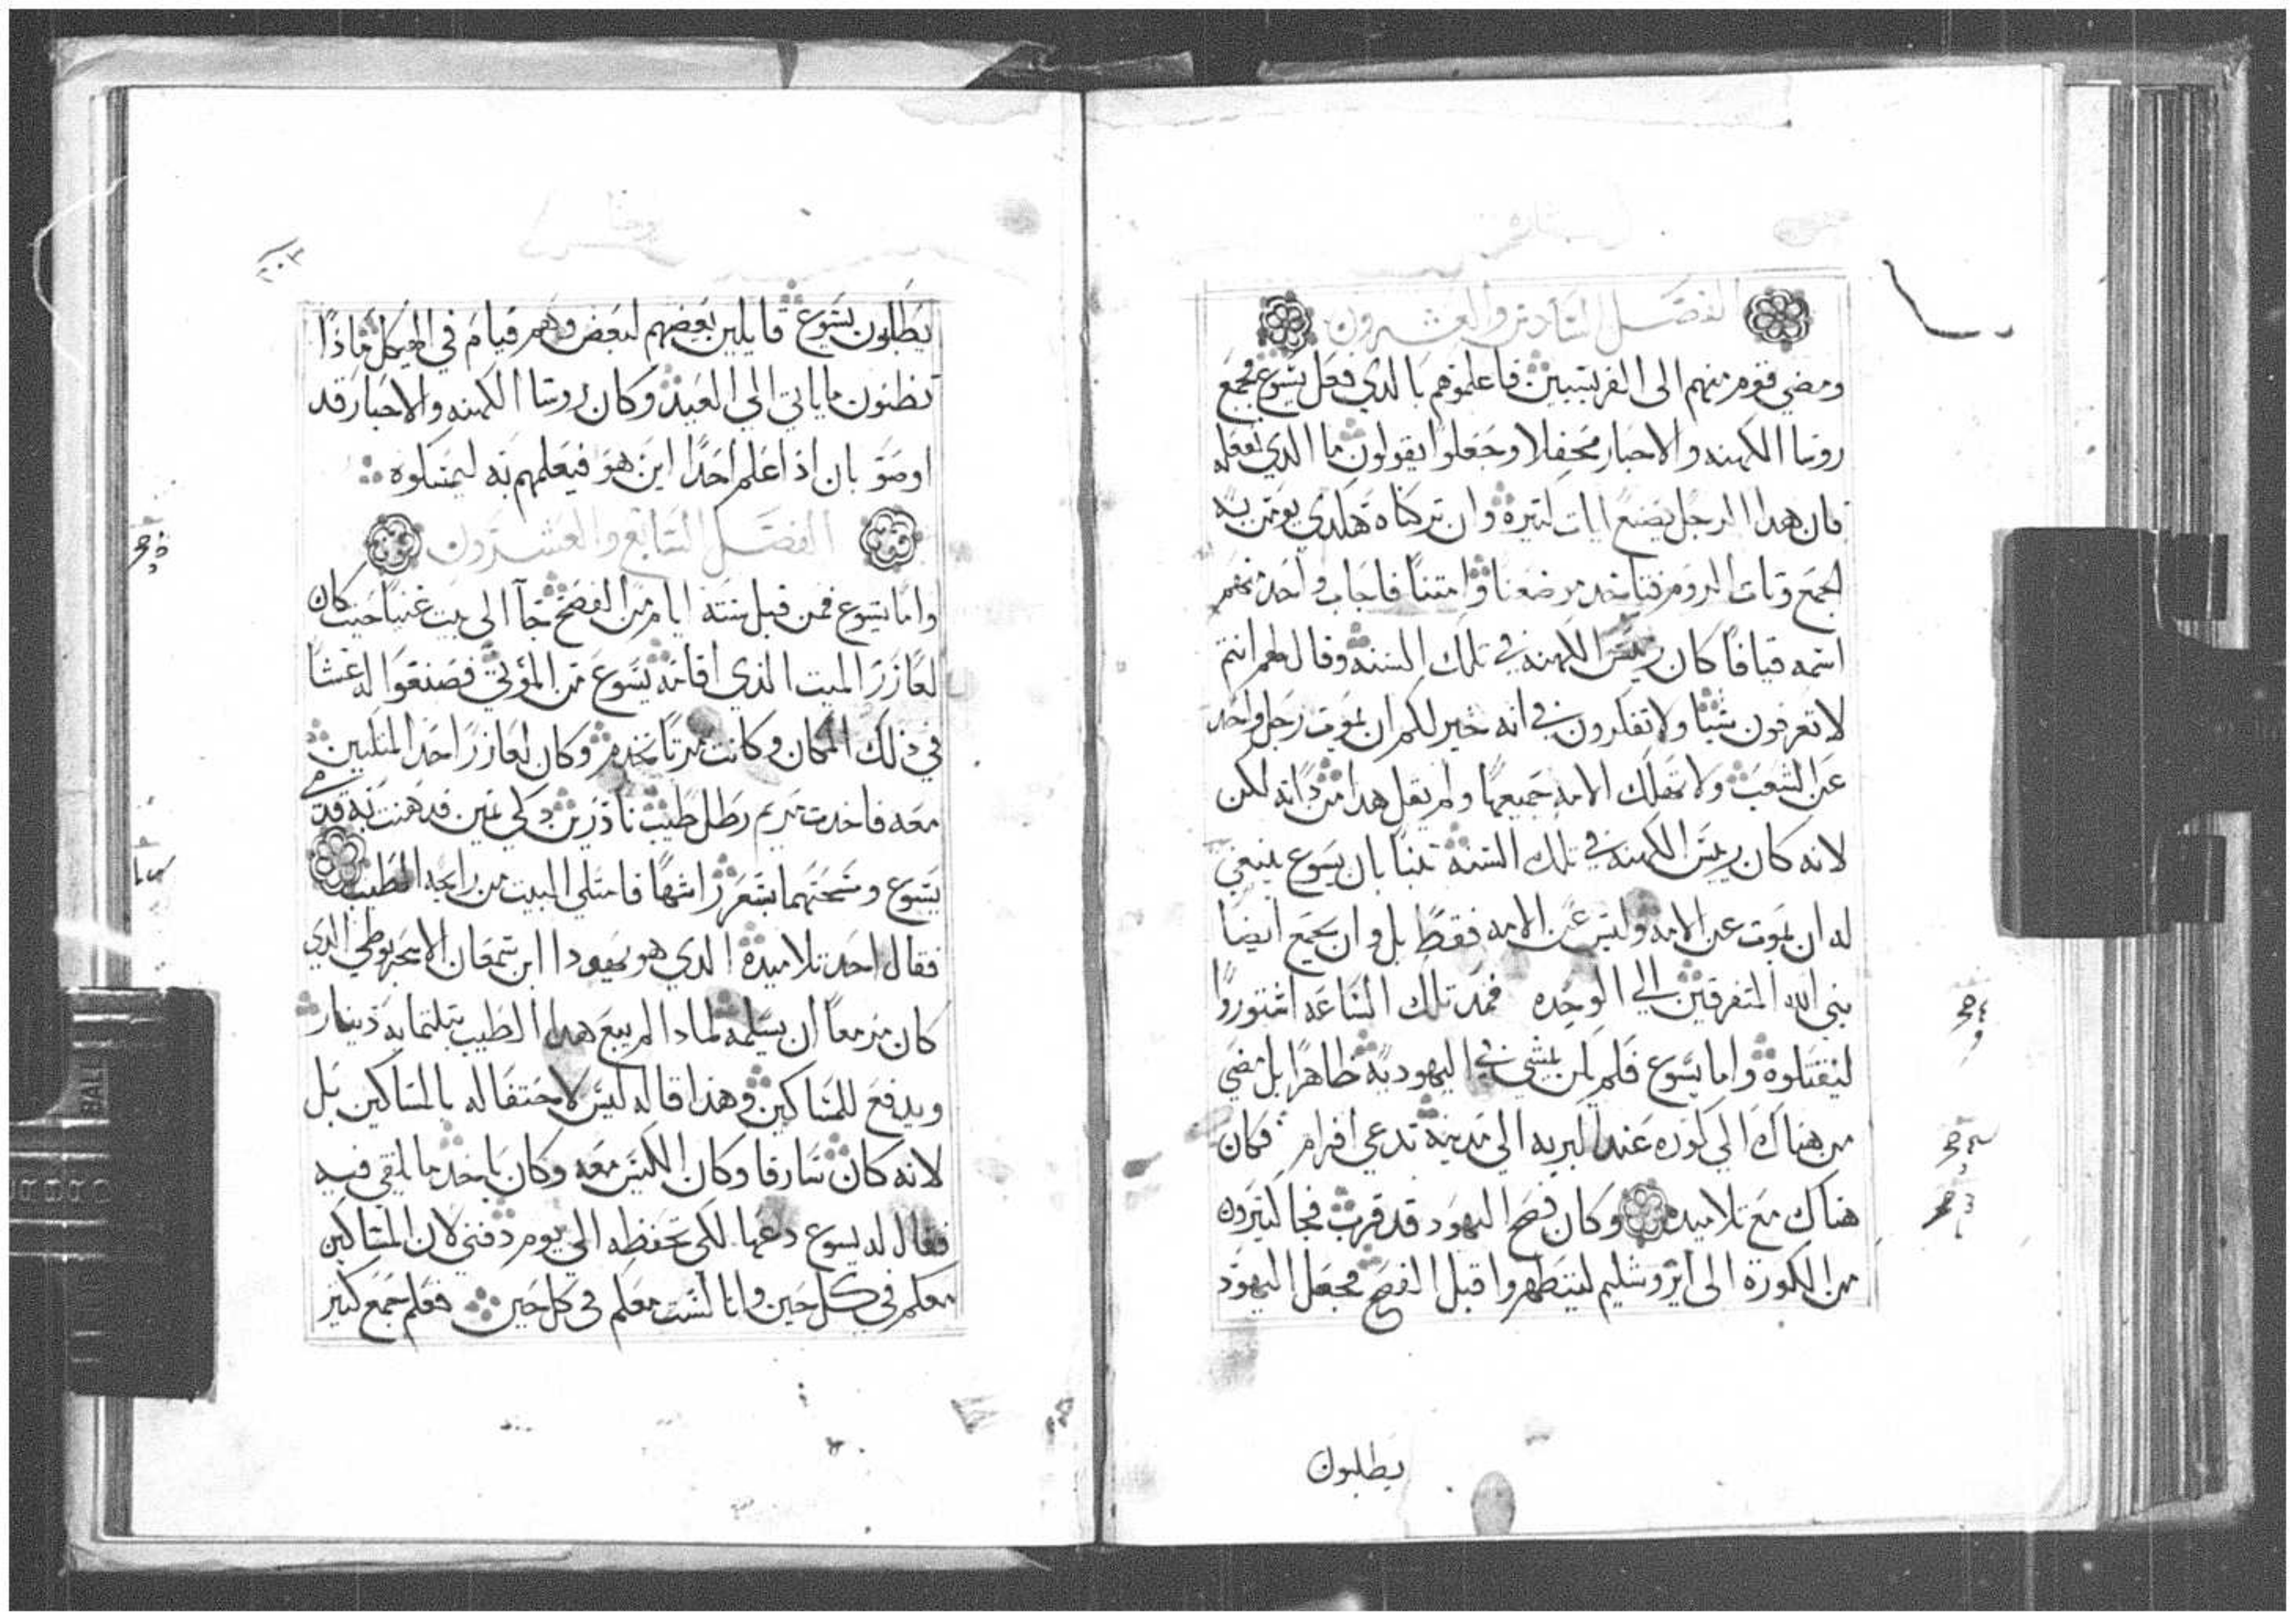 الفصل السادس والعشرون
ومضي قوم منهم الى الفريسيين فاعلموهم بالدي فعل يسوع فجمع
روسا الكهنه والاحبار محفلا وجعلوا يقولون ما الدي نفعله
فان هدا الرجل يصنع ايات كتيره وان تركناه هكدي يومن به
الجمع وتات الروم فتاخد موضعنا وامتنا فاجاب واحد منهم
اسمه قيافا كان رييس الكهنه في تلك السنه وقال لهم انتم
لا تعرفون شيا ولا تفكرون في انه خير لكم ان يموت رجل واحد
عن الشعب ولا تهلك الامه جميعها ولم يقل هدا من داته لكن
لانه كان رييس الكهنه في تلك السنة تنبا بان يسوع ينبغي
له ان يموت عن الامه وليس عن الامه فقط بل وان يجمع ايضا
بني الله المتفرقين الي الوحده فمند تلك الساعه اشتوروا
ليقتلوه واما يسوع فلم يكن يمشي في اليهودية ظاهرا بل مضي
من هناك الي كوره عند البريه الي مدينة تدعي افرام فكان
هناك مع تلاميده وكان فصح اليهود قد قرب فجا كتيرون
من الكورة الى ايروشليم ليتطهروا قبل الفصح فجعل اليهود
يطلبون
يوحنا
يطلبون يسوع قايلين بعضهم لبعض وهم قيام في الهيكل ماذا
تظنون ما ياتي الي العيد وكان روسا الكهنه والاحبار قد
اوصو بان اذا علم احدا اين هو فيعلمهم به ليمسكوه
الفصل السابع والعشرون
واما يسوع فمن قبل ستة ايام من الفصح جآ الى بيت عنيا حيت كان
لعازر الميت الذي اقامه يسوع من الموتي فصنعوا له عشا
في ذلك المكان وكانت مرتا تخدم وكان لعازر احد المتكين
معه فاخدت مريم رطل طيب ناردين دكي تمين فدهنت به قدمي
يسوع ومسحتهما بشعر راسها فامتلي البيت من رايحه الطيب
فقال احد تلاميده الدي هو يهودا ابن سمعان الاسخريوطي الدي
كان مزمعا ان يسلمه لمادا لم يبع هدا الطيب بتلتمايه دينار
ويدفع للمساكين وهذا قاله ليس لاحتفاله بالمساكين بل
لانه كان سارقا وكان الكيس معه وكان ياخد ما يلقي فيه
فقال له يسوع دعها لكي تحفظه الي يوم دفني لان المساكين
معكم في كل حين وانا لست معكم في كل حين فعلم جمع كتير